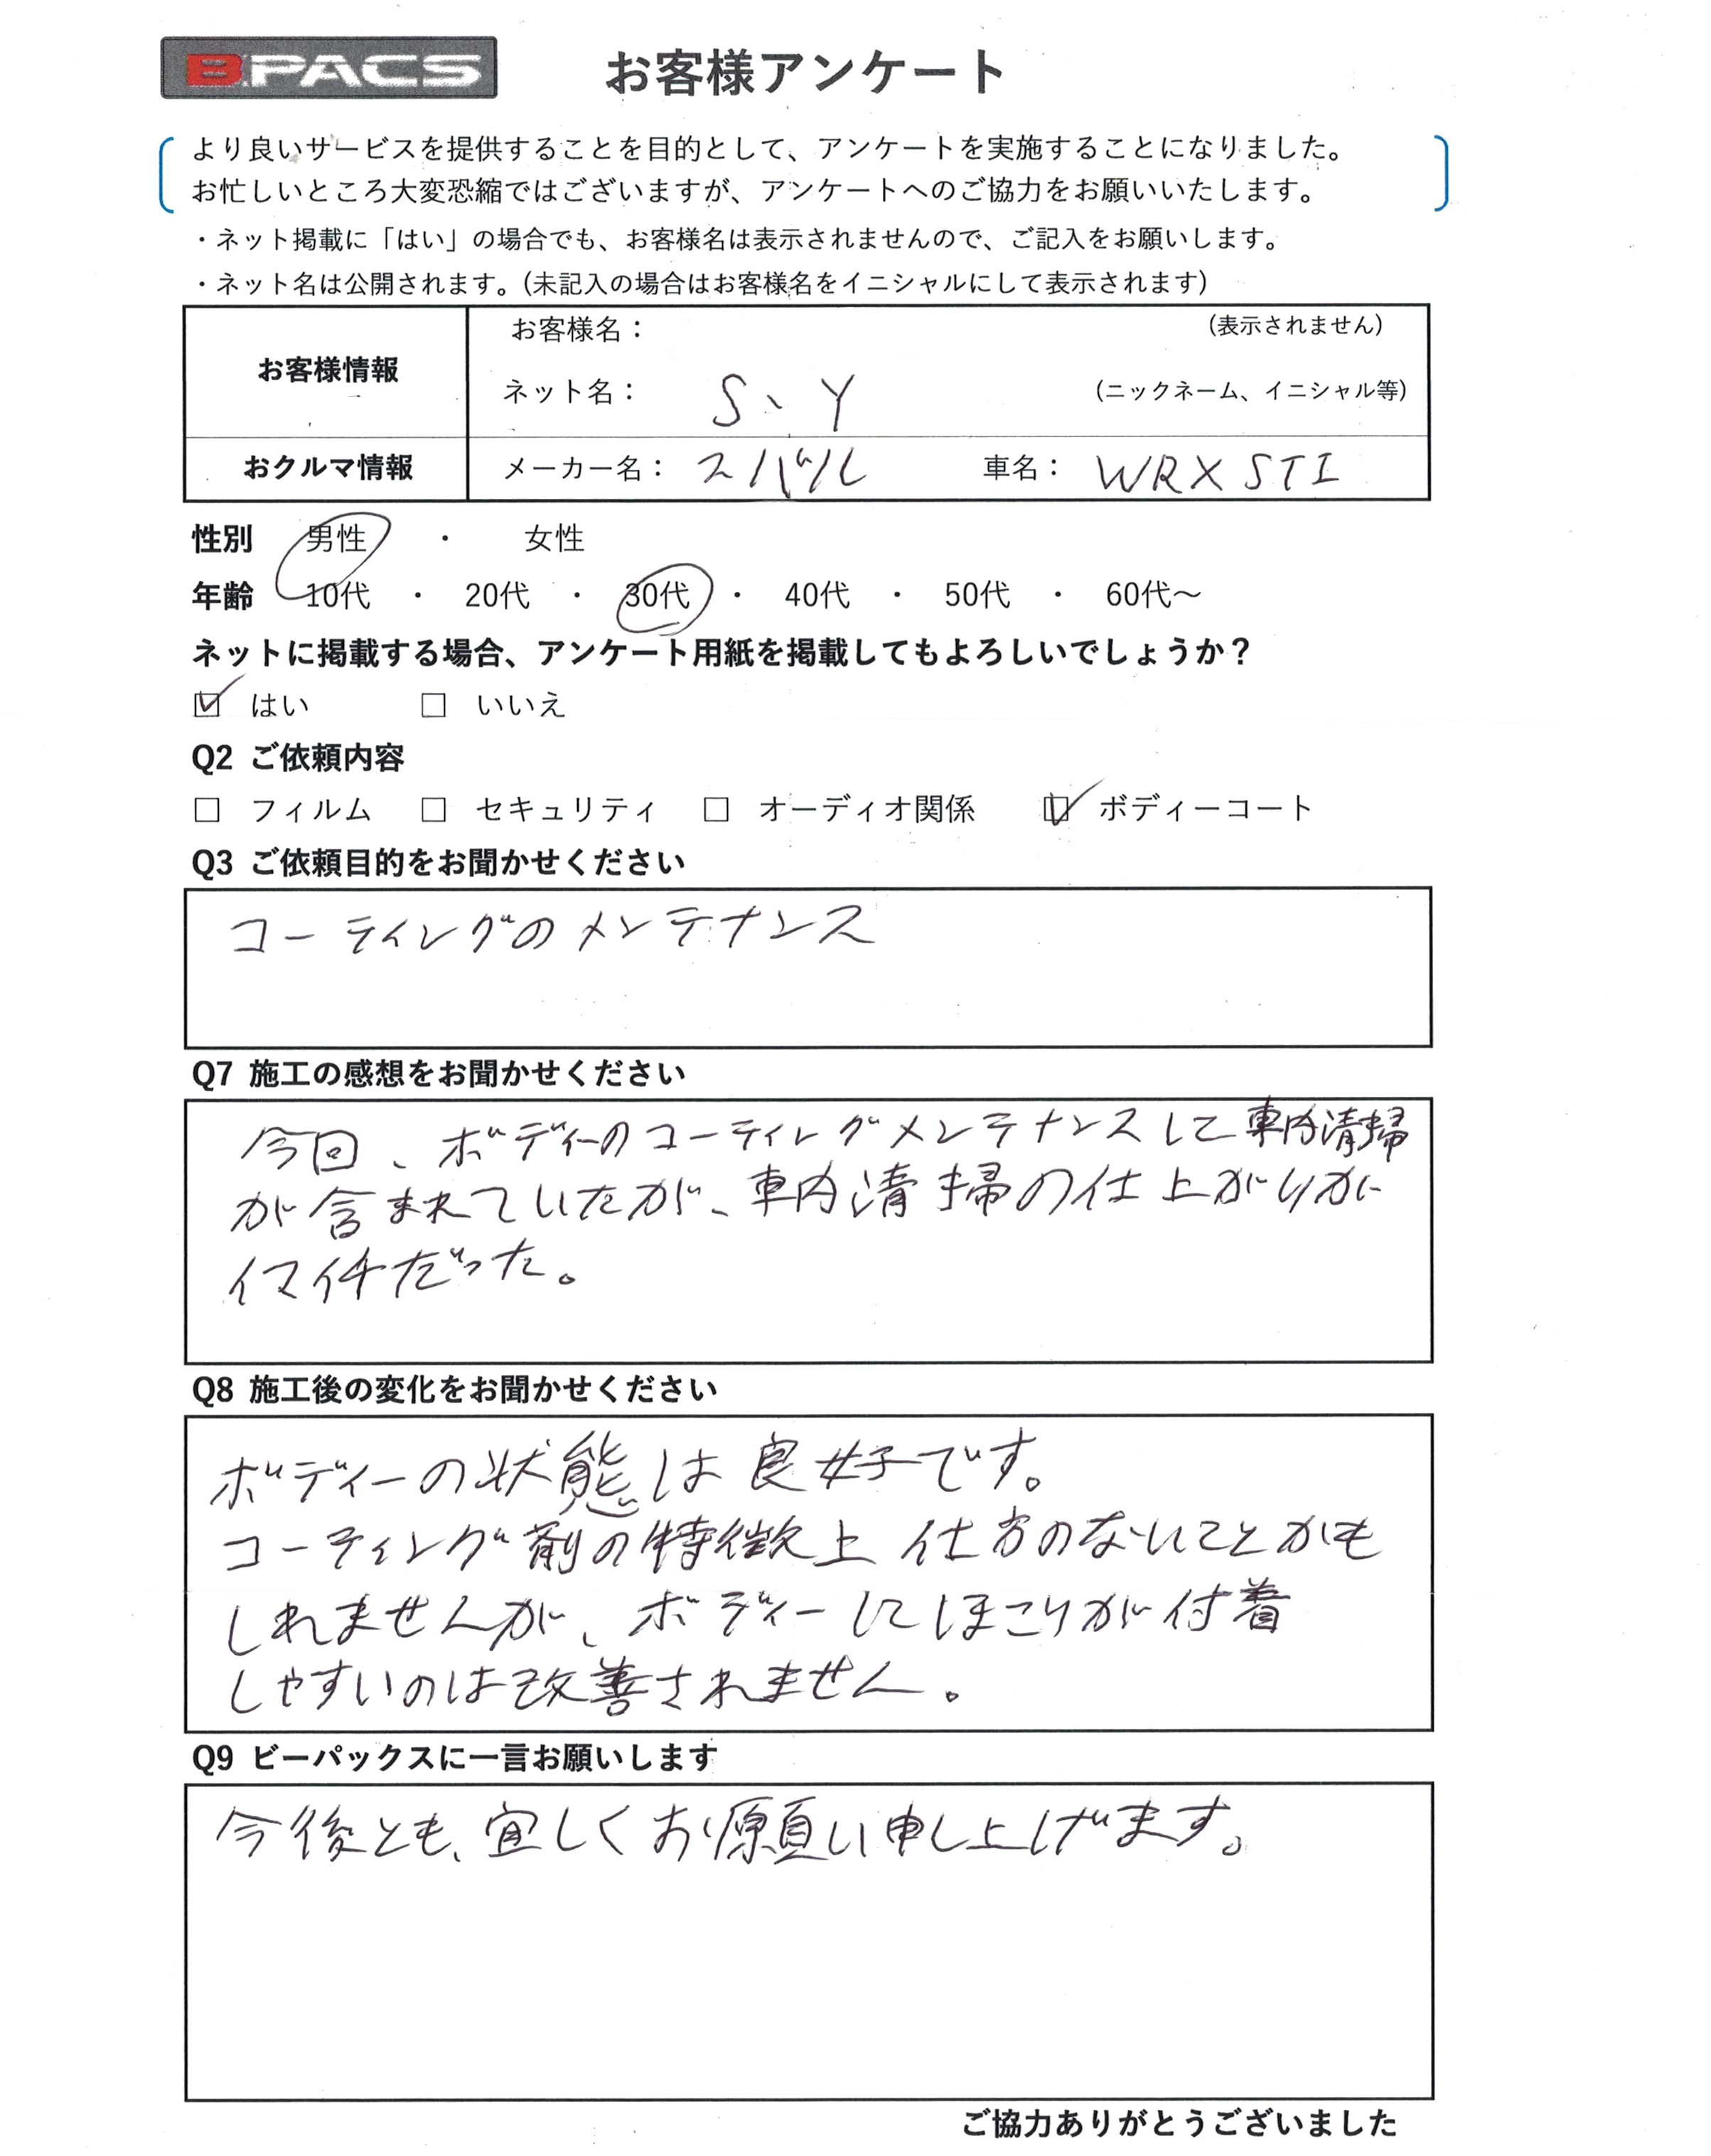 B.PACS お客様アンケート
より良いサービスを提供することを目的として、アンケートを実施することになりました。
お忙しいところ大変恐縮ではございますが、アンケートへのご協力をお願いいたします。
・ネット掲載に「はい」の場合でも、お客様名は表示されませんので、ご記入をお願いします。
・ネット名は公開されます。(未記入の場合はお客様名をイニシャルにして表示されます)
お客様情報
お客様名： (表示されません)
ネット名： S、Y (ニックネーム、イニシャル等)
おクルマ情報 メーカー名： スバル 車名： WRX STI
性別 男性 ・ 女性
年齢 10代 ・ 20代 ・ 30代 ・ 40代 ・ 50代 ・ 60代～
ネットに掲載する場合、アンケート用紙を掲載してもよろしいでしょうか？
☑ はい □ いいえ
Q2 ご依頼内容
□ フィルム □ セキュリティ □ オーディオ関係 ☑ ボディーコート
Q3 ご依頼目的をお聞かせください
コーティングのメンテナンス
Q7 施工の感想をお聞かせください
今回、ボディーのコーティングメンテナンスして車内清掃
が含まれていたが、車内清掃の仕上がりが
イマイチだった。
Q8 施工後の変化をお聞かせください
ボディーの状態は良好です。
コーティング剤の特徴上 仕方のないことかも
しれませんが、ボディーにほこりが付着
しやすいのは改善されません。
Q9 ビーパックスに一言お願いします
今後とも、宜しくお願い申し上げます。
ご協力ありがとうございました